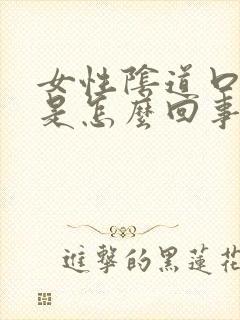 女性陰道口
是怎麼回事
進擊的黑蓮花